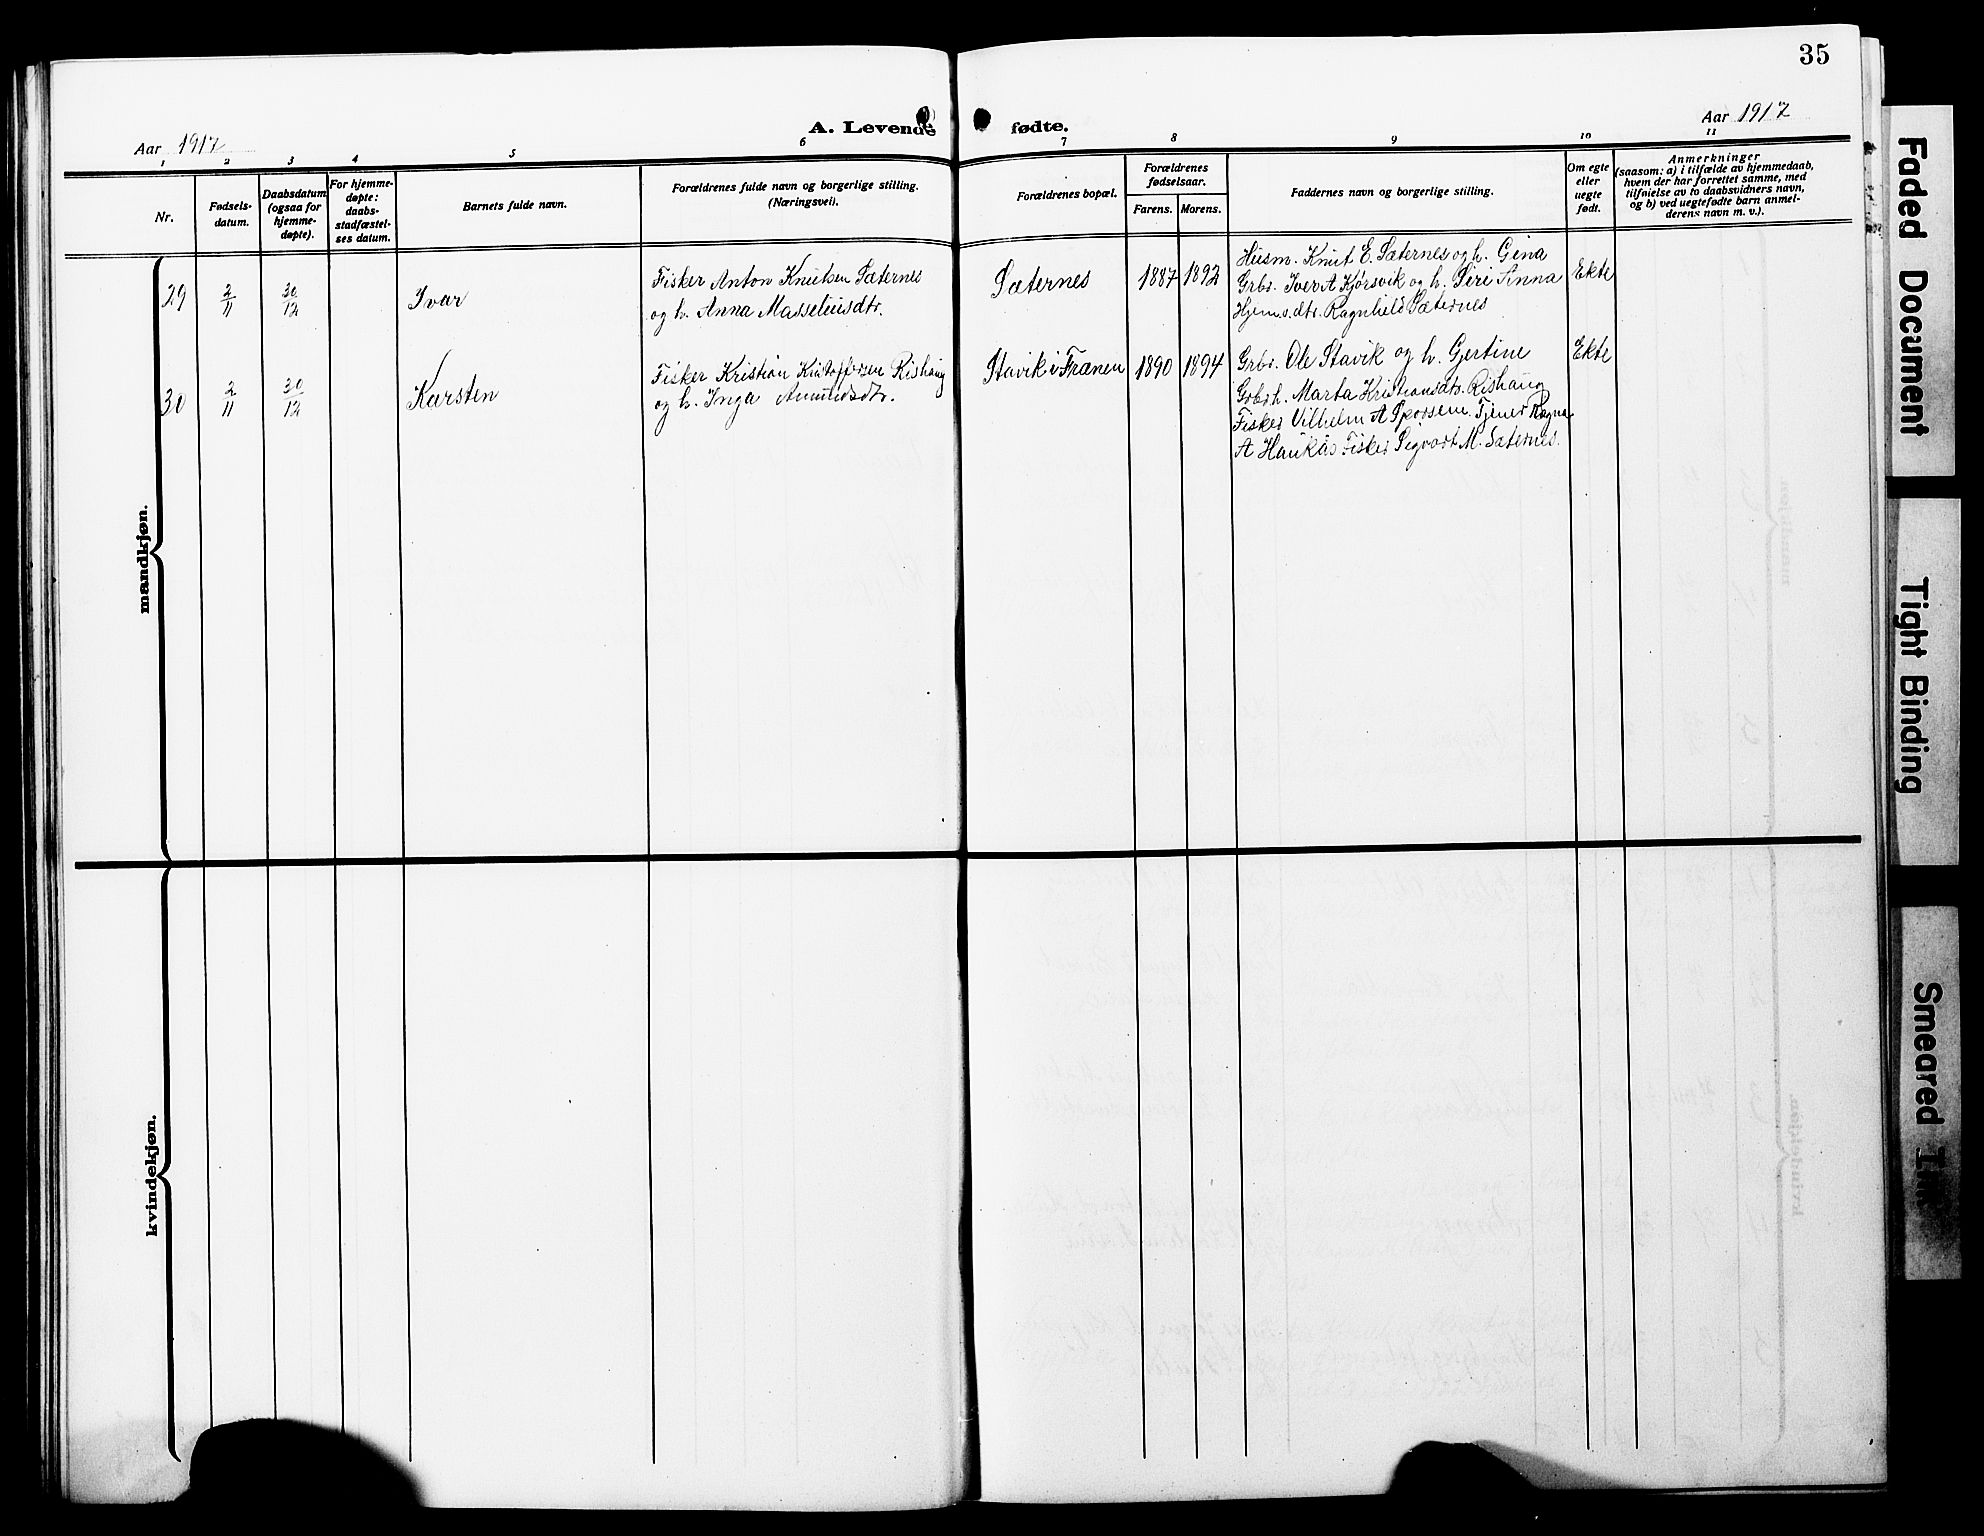 35
A. Levende fødte.
Aar 1917
Aar 1917
1 2 3 4 5 6 7 8 9 10 11
Nr.
Fødsels-
datum.
Daabsdatum
(ogsaa for
hjemme-
døpte).
For hjemme-
døpte:
daabs-
stadfæstel-
ses datum.
Barnets fulde navn.
Forældrenes fulde navn og borgerlige stilling.
(Næringsvei).
Forældrenes bopæl.
Forældrenes
fødselsaar.
Farens. Morens.
Faddernes navn og borgerlige stilling.
Om egte
eller
uegte
født.
Anmerkninger
(saasom: a) i tilfælde av hjemmedaab,
hvem der har forrettet samme, med
tilføielse av to daabsvidners navn,
og b) ved uegtefødte barn anmel-
derens navn m. v.).
mandkjøn.
29
2/11
30/12
Ivar
Fisker Anton Knutsen Sæternes
og h. Anna Masseliusdtr.
Sæternes
1887
1892
Husm. Knut E. Sæternes og h. Gina
Grbr. Iver A Kjørsvik og h. Siri Anna
Hjem.v.dtr. Ragnhild Sæternes
Ekte
30
2/11
30/12
Karsten
Fisker Kristian Kristoffersen Rishaug
og h. Inga Amundsdtr.
Stavik i Frænen
1890
1894
Grbr. Ole Stavik og h. Gjertine
Grbrh. Marta Kristiansdtr. Rishaug
Fisker Vilhelm A Sporsem. Tjener Ragna
A Haukås Fisker Sigvart M. Sæternes.
Ekte
kvindekjøn.
Faded Document
Tight Binding
Smeared Ink